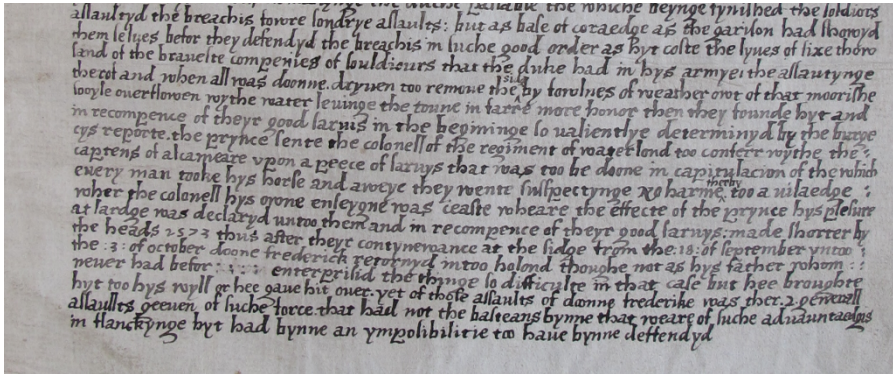 the whiche beynge fynished the soldiors
assaultyd the breachis fowre sondrye assaults: but as base of coraedge as the garison had shewyd
them selves befor they defendyd the breachis in suche good order as hyt coste the lyves of sixe thow
sand of the bravelte compenies of souldiours that the duke had in hys armye: the assautynge
therof and when all was doonne. dryven too remove the sidg by fowlnes of weather owt of that moorishe
sooyle overflowen wythe water levinge the toune in farre more honor then they founde hyt and
in recompence of theyr good sarvis in the beginninge so valientlye determinyd by the burge
cys reporte. the prynce sente the colonell of the regiment of waterlond too conferr wythe the :
captens of alcameare vpon a peece of sarvys that was too be doone in capitulacion of the which
every man tooke hys horse and awaye they wente suspectynge no harme therby too a vilaedge :
wher the colonell hys owne enseygne was ceaste wheare the effecte of the prynce hys plesure
at lardge was declaryd untoo them and in recompence of theyr good sarvys: made shorter by
the heads 1573 thus after theyr contynewance at the sidge from the :18: of september vntoo :
the :3: of october doone frederick retornyd intoo holond thoughe not as hys father whom : :
never had befor : : : : enterprisid the thinge so difficulte in that case but hee broughte
hyt too hys wyll or hee gave hit over. yet of those assaults of doonne frederike was ther .2. generall
assaullts geeven of suche force. that had not the basteans bynne that weare of suche advauntaedgis
in flanckynge hyt had bynne an ympossibilitie too have bynne deffendyd